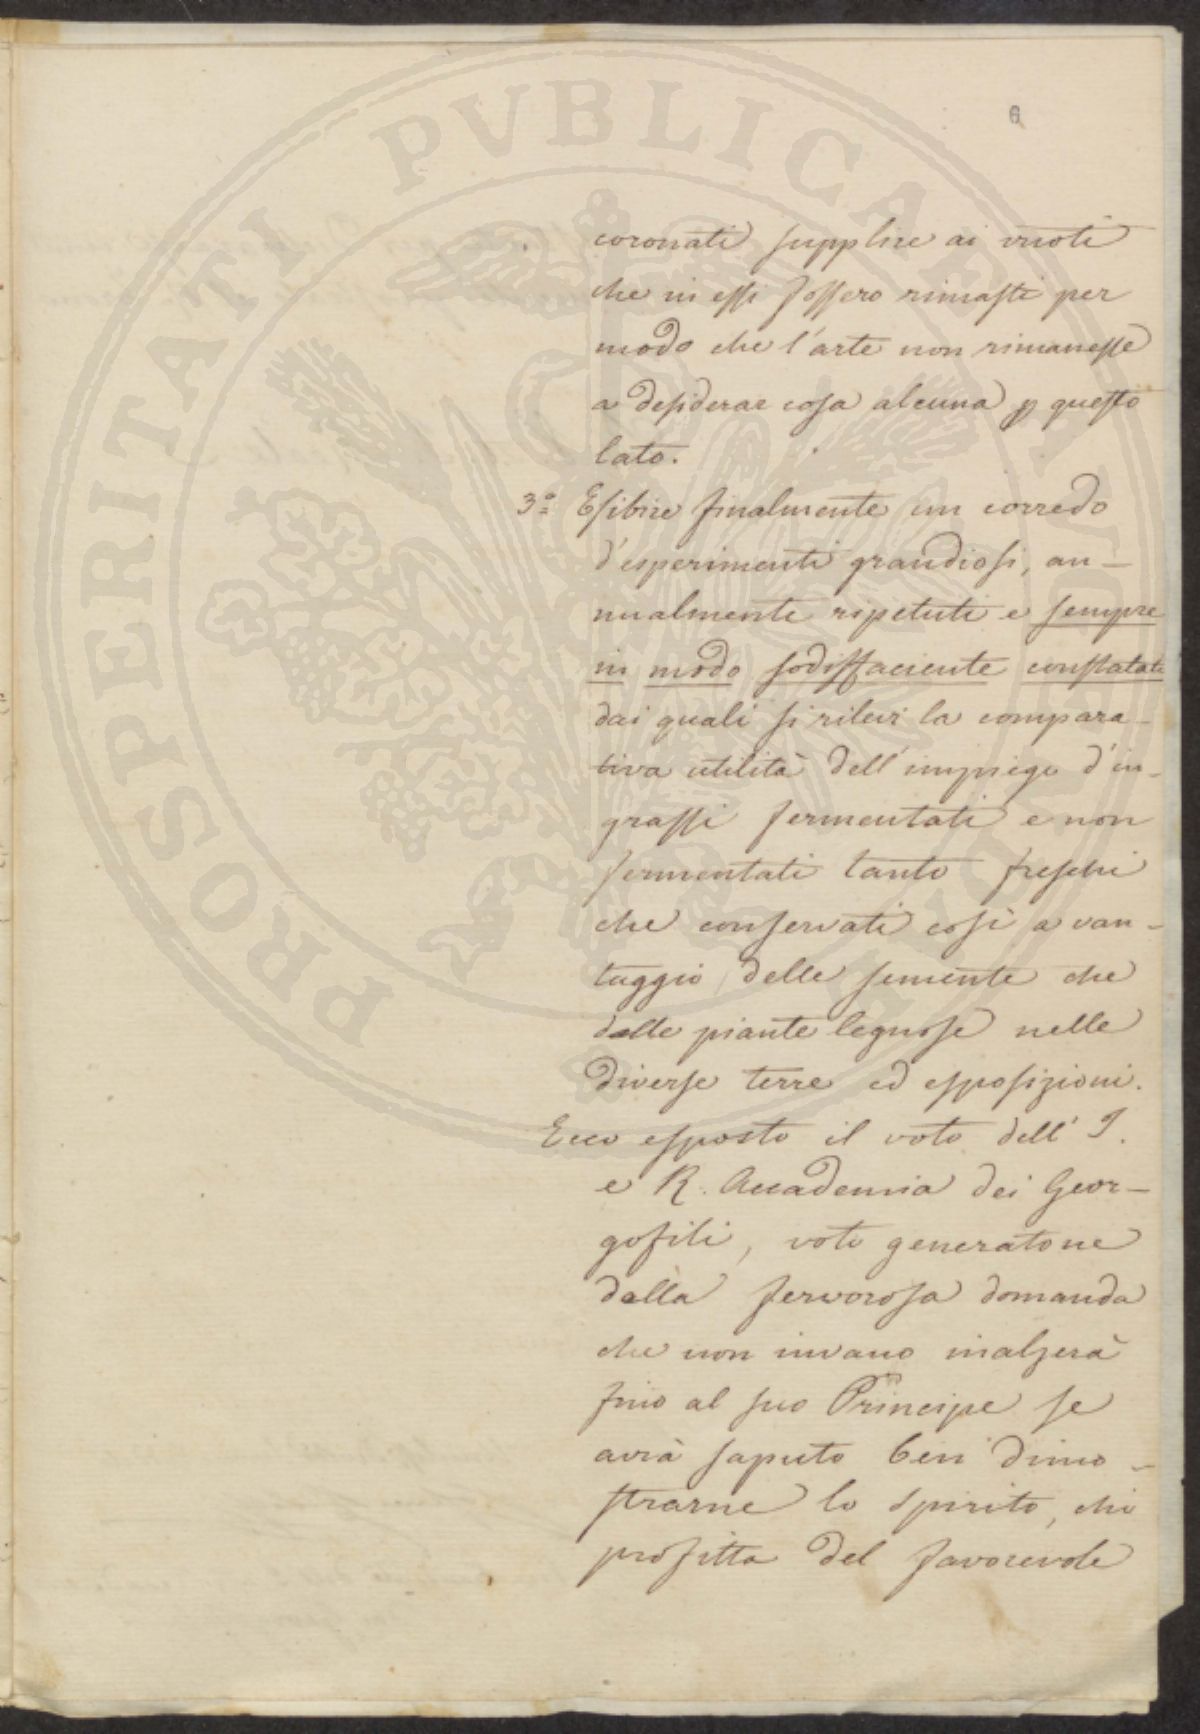 PROSPERITATI PVBLICAE AVGENDAE
6
coronati supplire ai vuoti
che in essi fossero rimasti per
modo che l'arte non rimanesse
a desiderar cosa alcuna p questo
lato.
3º Esibire finalmente un corredo
d'esperimenti grandiosi, an-
nualmente ripetuti e sempre
in modo sodisfaciente constatati
dai quali si rilevi la compara-
tiva utilità dell'impiego d'in-
grassi fermentati e non
fermentati tanto freschi
che conservati così a van-
taggio delle semente che
delle piante legnose nelle
diverse terre ed esposizioni.
Ecco esposto il voto dell' I.
e R. Accademia dei Geor-
gofili, voto generatone
dalla fervorosa domanda
che non invano inalzerà
fino al suo Principe se
avrà saputo ben dimo-
strarne lo spirito, chi
profitta del favorevole